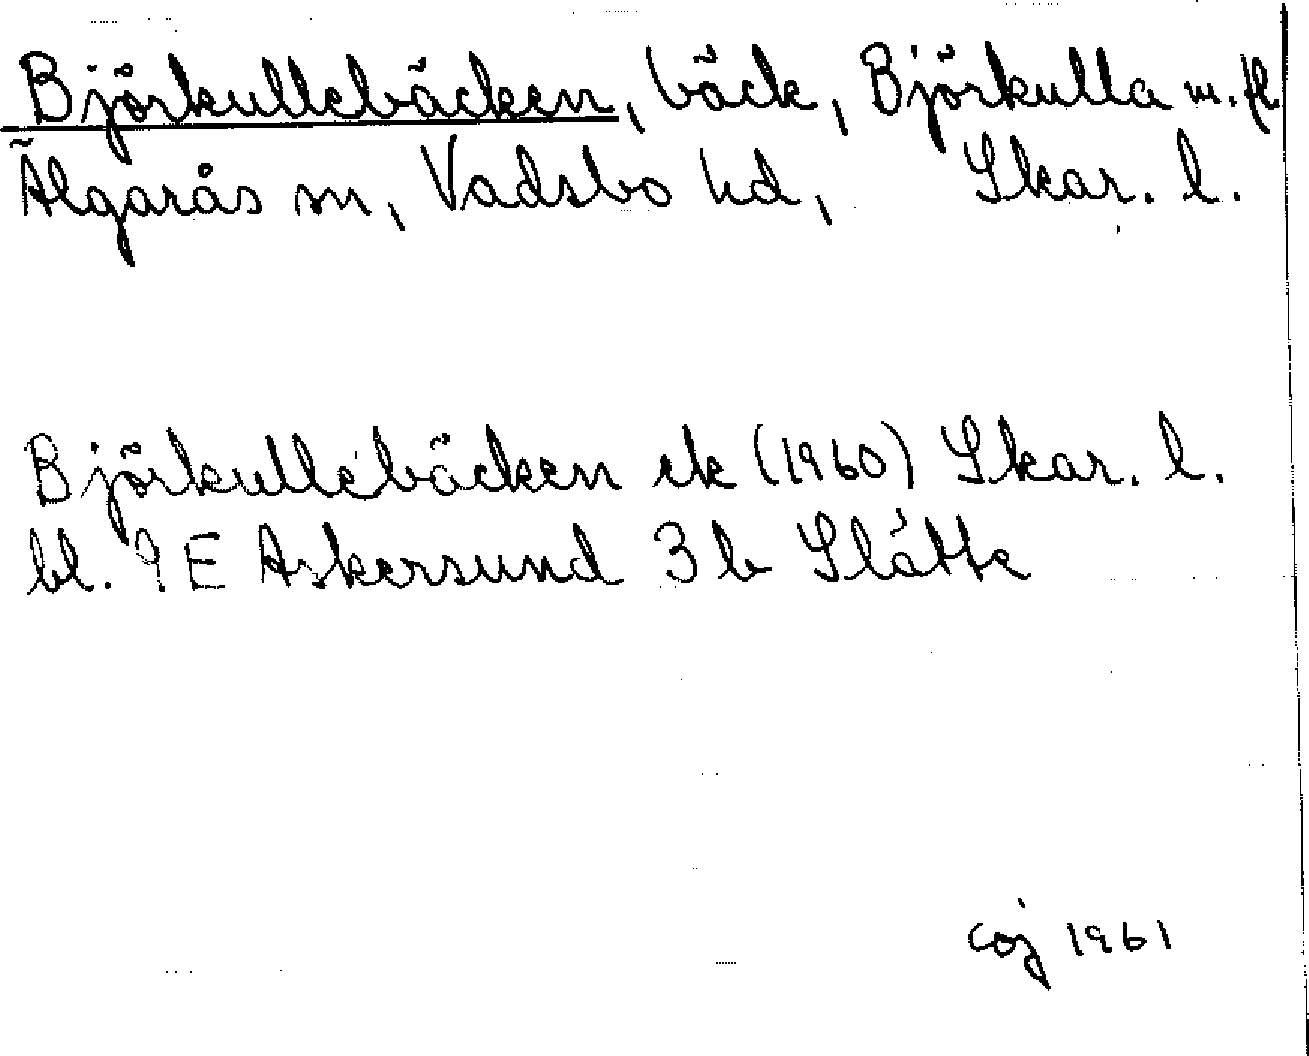 Björkullebäcken, bäck, Björkulla m. fl
Älgarås sn, Vadsbo hd, Skar. l.
Björkullebäcken ek (1960) Skar. l.
bl. 9E Askersund 3 b Slätte
coj 1961